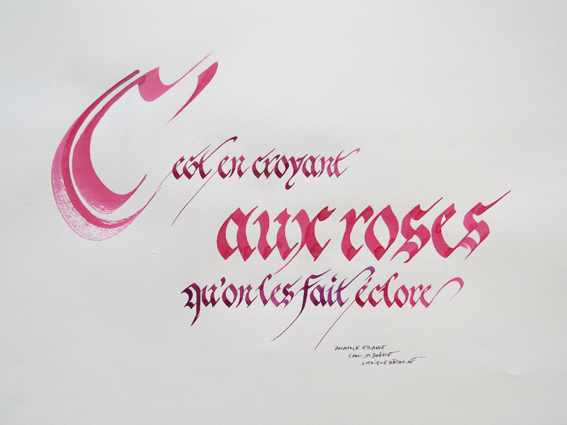 C'est en croyant
aux roses
qu'on les fait éclore
ANATOLE FRANCE